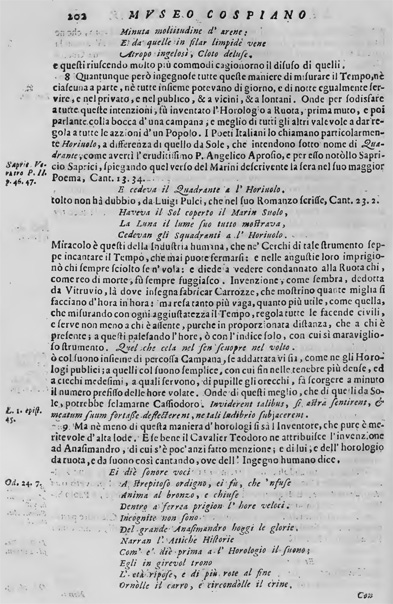 202 MVSEO COSPIANO
Minuta moltitudine d' arene;
E da quelle in filar limpide vene
Atropo ingelosì, Cloto deluse.
e questi riuscendo molto più commodi cagionorno il disuso di quelli.
8 Quantunque però ingegnose tutte queste maniere di misurare il Tempo, nè
ciascuna a parte, nè tutte insieme potevano di giorno, e di notte egualmente ser-
vire, e nel privato, e nel publico, & a vicini, & a lontani. Onde per sodisfare
a tutte queste intenzioni, fù inventato l'Horologio a Ruota, prima muto, e poi
parlante colla bocca d'una campana, e meglio di tutti gli altri valevole a dar re-
gola a tutte le azzioni d'un Popolo. I Poeti Italiani lo chiamano particolarmen-
te Horinolo, a differenza di quello da Sole, che intendono sotto nome di Qua-
drante, come avertì l'eruditissimo P. Angelico Aprosio, e per esso notòllo Sapri-
Sapric. Ve-
ratro P. II.
p. 46. 47.
cio Saprici, spiegando quel verso del Marini descrivente la sera nel suo maggior
Poema, Cant. 13. 34.
E cedeva il Quadrante a l' Horinolo.
tolto non hà dubbio, da Luigi Pulci, che nel suo Romanzo scrisse, Cant. 23. 2.
Haveva il Sol coperto il Marin Suolo,
La Luna il lume suo tutto mostrava,
Cedevan gli Squadranti a l' Horinolo.
Miracolo è questi della Industria humana, che ne' Cerchi di tale strumento sep-
pe incantare il Tempo, che mai puote fermarsi: e nelle angustie loro imprigio-
nò chi sempre sciolto se n' vola: e diede a vedere condannato alla Ruota chi,
come reo di morte, fù sempre fuggiasco. Invenzione, come sembra, dedotta
da Vitruvio, là dove insegna fabricar Carrozze, che mostrino quante miglia si
facciano d'hora in hora: ma resa tanto più vaga, quanto più utile, come quella,
che misurando con ogni aggiustatezza il Tempo, regola tutte le facende civili,
e serve non meno a chi è assente, purche in proporzionata distanza, che a chi è
presente; a questi palesando l'hore, ò con l'indice solo, con cui si maraviglio-
so strumento. Quel che cela nel sen scuopre nel volto.
ò col suono insieme di percossa Campana, se addattata vi sia, come ne gli Horo-
logi publici; a quelli col suono semplice, con cui fin nelle tenebre più dense, ed
a ciechi medesimi, a quali servono, di pupille gli orecchi, fà scorgere a minuto
il numero prefisso delle hore volate. Onde di questi meglio, che di quelli da So-
le, potrebbe sclamarne Cassiodoro. Inviderent talibus, si astra sentirent, &
E. 1. epist.
45.
meatum suum fortasse deflecterent, ne tali ludibrio subjacerent.
9 Mà nè meno di questa maniera d'horologi si sà l'Inventore, che pure è me-
ritevole d'alta lode. E se bene il Cavalier Teodoro ne attribuisce l'invenzione
ad Anasimandro, di cui s'è poc'anzi fatto menzione; e di lui, e dell'horologio
da ruota, e da suono così cantando, ove dell' Ingegno humano dice.
Ei diè sonore voci
Od. 24. 7.
A strepitoso ordigno, ei fù, che 'nfuse
Anima al bronzo, e chiuse
Dentro a ferrea prigion l' hore veloci.
Incognite non sono
Del grande Anasimandro hoggi le glorie.
Narran l' Attiche Historie
Com' e' diè prima a l' Horologio il suono;
Egli in girevol trono
L' età ripose, e di più rote al fine
Ornòlle il carro, e circondòlle il crine.
Con